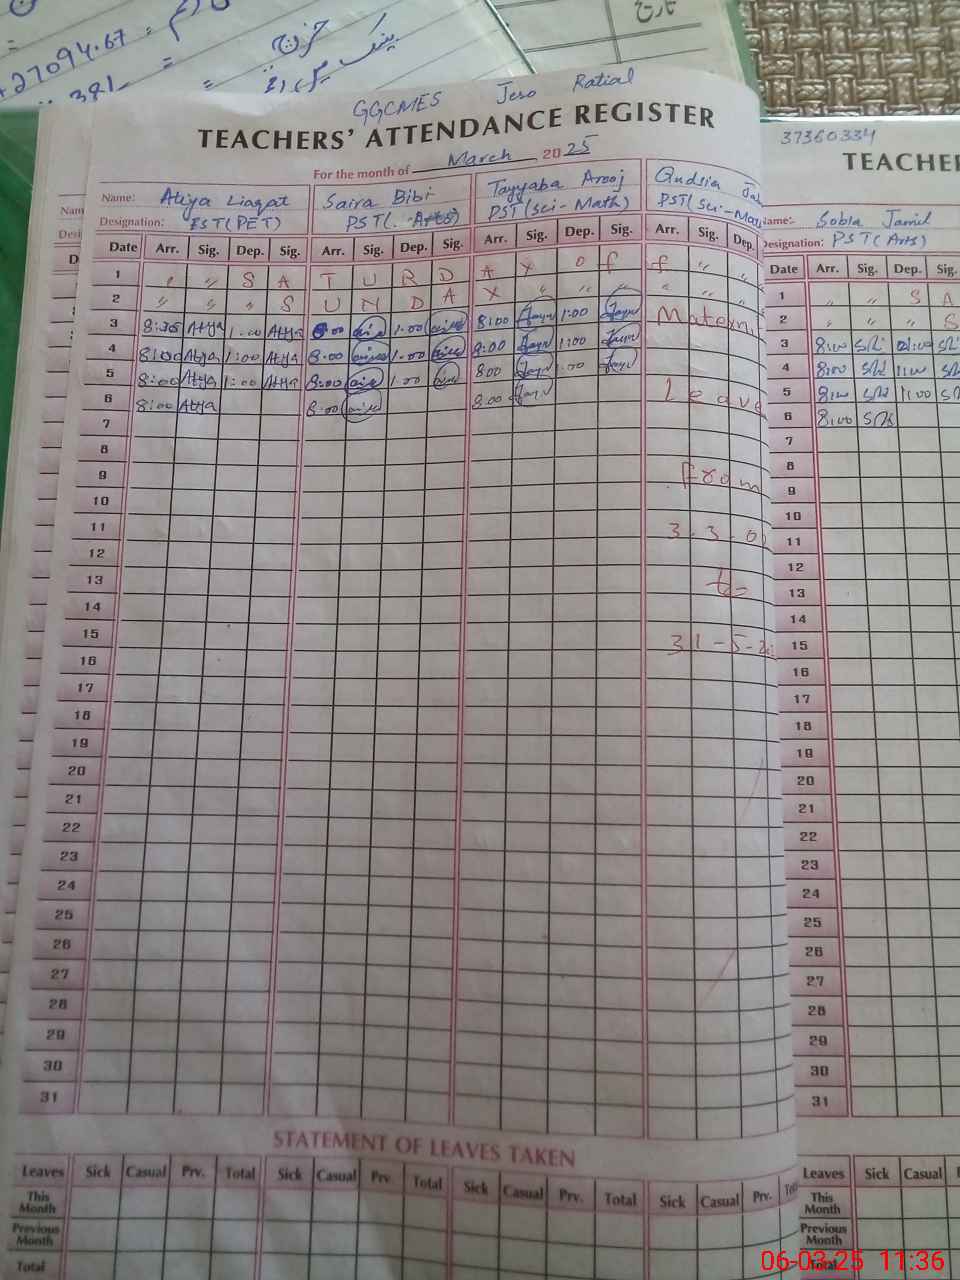 +27094.67 =
381 =
خرچ
تاریخ
GGCMES Jeso Ratial
TEACHERS' ATTENDANCE REGISTER
For the month of March 2025
Name: Atiya Liaqat Saira Bibi Tayyaba Arooj Qudsia
Designation: EST (PET) PST (Arts) PST (Sci-Math) PST (Sci-Mat
Date Arr. Sig. Dep. Sig. Arr. Sig. Dep. Sig. Arr. Sig. Dep. Sig. Arr. Sig. Dep.
1 " " S A T U R D A Y O f f " "
2 " " " S U N D A Y " " " " " "
3 8:30 Atiya 1:00 Atiya 8:00 1:00 8:00 1:00 Matern
4 8:00 Atiya 1:00 Atiya 8:00 1:00 8:00 1:00
5 8:00 Atiya 1:00 Atiya 8:00 1:00 8:00 1:00 Leave
6 8:00 Atiya 8:00 8:00
7
8
9 From
10
11 3-3-0
12
13 to
14
15 31-5-2
16
17
18
19
20
21
22
23
24
25
26
27
28
29
30
31
STATEMENT OF LEAVES TAKEN
Leaves Sick Casual Prv. Total Sick Casual Prv. Total Sick Casual Prv. Total Sick Casual Prv.
This Month
Previous Month
Total
37360334
TEACHE
Name: Sobia Jamil
Designation: PST (Arts)
Date Arr. Sig. Dep. Sig.
1 " " S A
2 " " " S
3 8:00
4 8:00 1:00
5 8:00 1:00
6 8:00
7
8
9
10
11
12
13
14
15
16
17
18
19
20
21
22
23
24
25
26
27
28
29
30
31
Leaves Sick Casual
This Month
Previous Month
Total
06-03-25 11:36